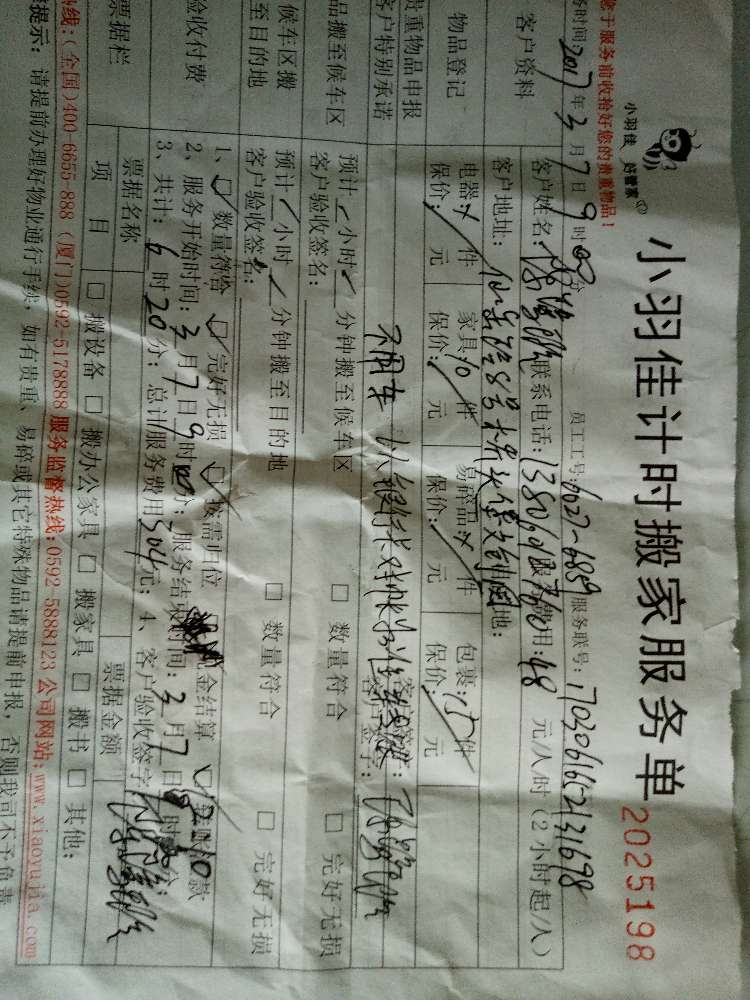 小羽佳 好管家
小羽佳计时搬家服务单 2025198
您于服务前收拾好您的贵重物品！
务时间 2017年3月7日9时00分 员工工号：6027-6859 服务联号：1703061652131698
客户资料 客户姓名： 联系电话： 服务费用：48 元/人/时（2小时起/人）
客户地址：
物品登记 电器： 件 家具：10件 易碎品： 件 包裹：15件
贵重物品申报 保价： 元 保价： 元 保价： 元 保价： 元
客户特别承诺 不用车 客户签字：
品搬至候车区 预计 小时 分钟搬至候车区 □ 数量符合 □ 完好无损
客户验收签名：
候车区搬至目的地 预计 小时 分钟搬至目的地 □ 数量符合 □ 完好无损
客户验收签名：
验收付费 1、□ 数量符合 □ 完好无损 □ 按需归位 现金结算
2、服务开始时间：3月7日9时00分；服务结束时间：3月7日 时 分
3、共计：6时20分；总计服务费用304元；4、客户验收签字
票据栏 票据名称 票据金额
项目 □ 搬设备 □ 搬办公家具 □ 搬家具 □ 搬书 □ 其他：
热线：(全国)400-6655-888 (厦门)0592-5178888 服务监督热线：0592-5888123 公司网站：www.xiaoyujia.com
提示：请提前办理好物业通行手续，如有贵重、易碎或其它特殊物品请提前申报，否则我司不予负责